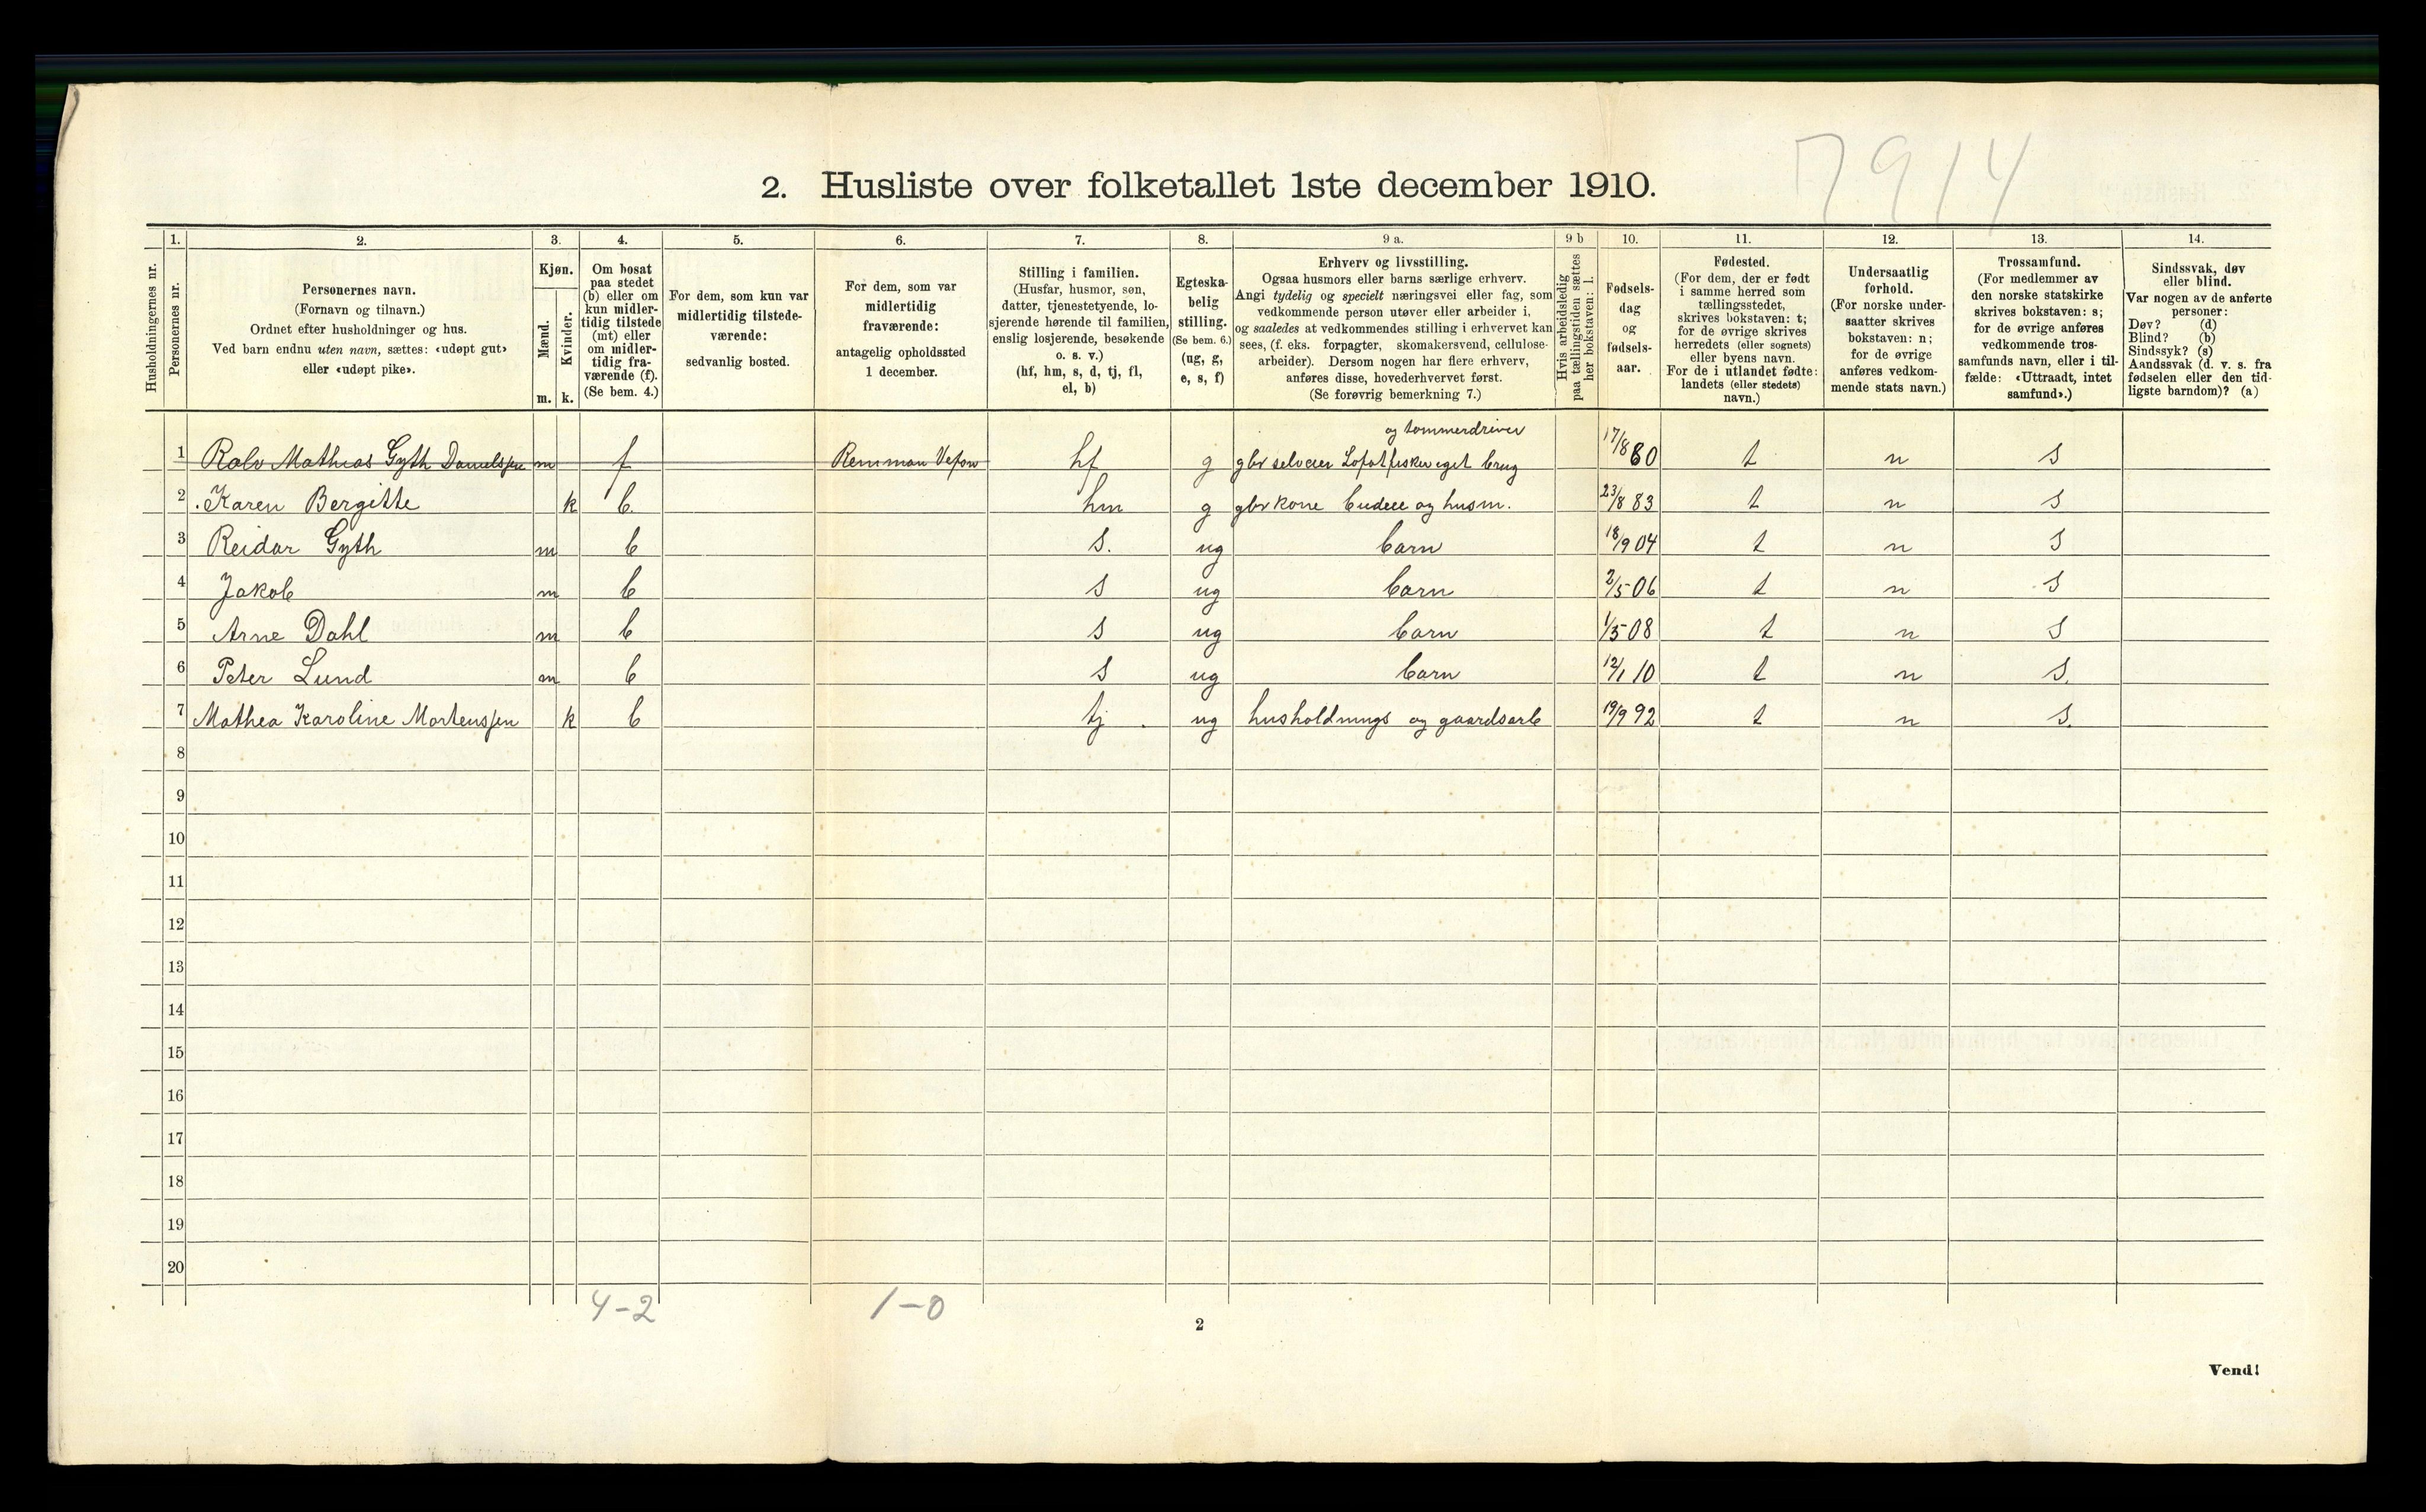 7914
2. Husliste over folketallet 1ste december 1910.
Husholdningernes nr.
1.
Personernes nr.
2.
Personernes navn.
(Fornavn og tilnavn.)
Ordnet efter husholdninger og hus.
Ved barn endnu uten navn, sættes: «udøpt gut»
eller «udøpt pike».
3.
Kjøn.
Mænd.
Kvinder.
m. k.
4.
Om bosat
paa stedet
(b) eller om
kun midler-
tidig tilstede
(mt) eller
om midler-
tidig fra-
værende (f).
(Se bem. 4.)
5.
For dem, som kun var
midlertidig tilstede-
værende:
sedvanlig bosted.
6.
For dem, som var
midlertidig
fraværende:
antagelig opholdssted
1 december.
7.
Stilling i familien.
(Husfar, husmor, søn,
datter, tjenestetyende, lo-
sjerende hørende til familien,
enslig losjerende, besøkende
o. s. v.)
(hf, hm, s, d, tj, fl,
el, b)
8.
Egteska-
belig
stilling.
(Se bem. 6.)
(ug, g,
e, s, f)
9 a.
Erhverv og livsstilling.
Ogsaa husmors eller barns særlige erhverv.
Angi tydelig og specielt næringsvei eller fag, som
vedkommende person utøver eller arbeider i,
og saaledes at vedkommendes stilling i erhvervet kan
sees, (f. eks. forpagter, skomakersvend, cellulose-
arbeider). Dersom nogen har flere erhverv,
anføres disse, hovederhvervet først.
(Se forøvrig bemerkning 7.)
9 b
Hvis arbeidsledig
paa tællingstiden sættes
her bokstaven: l.
10.
Fødsels-
dag
og
fødsels-
aar.
11.
Fødested.
(For dem, der er født
i samme herred som
tællingsstedet,
skrives bokstaven: t;
for de øvrige skrives
herredets (eller sognets)
eller byens navn.
For de i utlandet fødte:
landets (eller stedets)
navn.)
12.
Undersaatlig
forhold.
(For norske under-
saatter skrives
bokstaven: n;
for de øvrige
anføres vedkom-
mende stats navn.)
13.
Trossamfund.
(For medlemmer av
den norske statskirke
skrives bokstaven: s;
for de øvrige anføres
vedkommende tros-
samfunds navn, eller i til-
fælde: «Uttraadt, intet
samfund».)
14.
Sindssvak, døv
eller blind.
Var nogen av de anførte
personer:
Døv? (d)
Blind? (b)
Sindssyk? (s)
Aandssvak (d. v. s. fra
fødselen eller den tid-
ligste barndom)? (a)
og tømmerdriver
1 Rolv Mathias Gyth Danielssen m f Vefsn hf g gbr selveier Lofotfisker eget brug 17/8 80 t n s
2 Karen Bergitte k b. hm g gbr kone budeie og husm. 23/8 83 t n s
3 Reidar Gyth m b s. ug barn 18/9 04 t n s
4 Jakob m b s ug barn 2/5 06 t n s
5 Arne Dahl m b s ug barn 1/5 08 t n s
6 Peter Lund m b s ug barn 12/1 10 t n s.
7 Mathea Karoline Mortenssen k b tj. ug husholdnings og gaardsarb 19/9 92 t n s.
8
9
10
11
12
13
14
15
16
17
18
19
20
4-2
1-0
2
Vend!